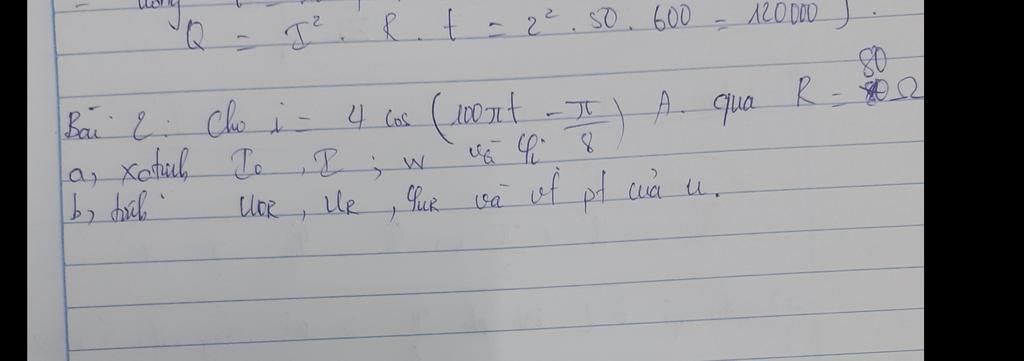 Q = I² . R . t = 2² . 50 . 600 = 120000 J.
Bài 2: Cho i = 4 cos (100πt - π/8) A. qua R = 80 Ω
a, xđ I₀, I ; w và φi
b, tính U₀R, UR, φuR và vt pt của u.